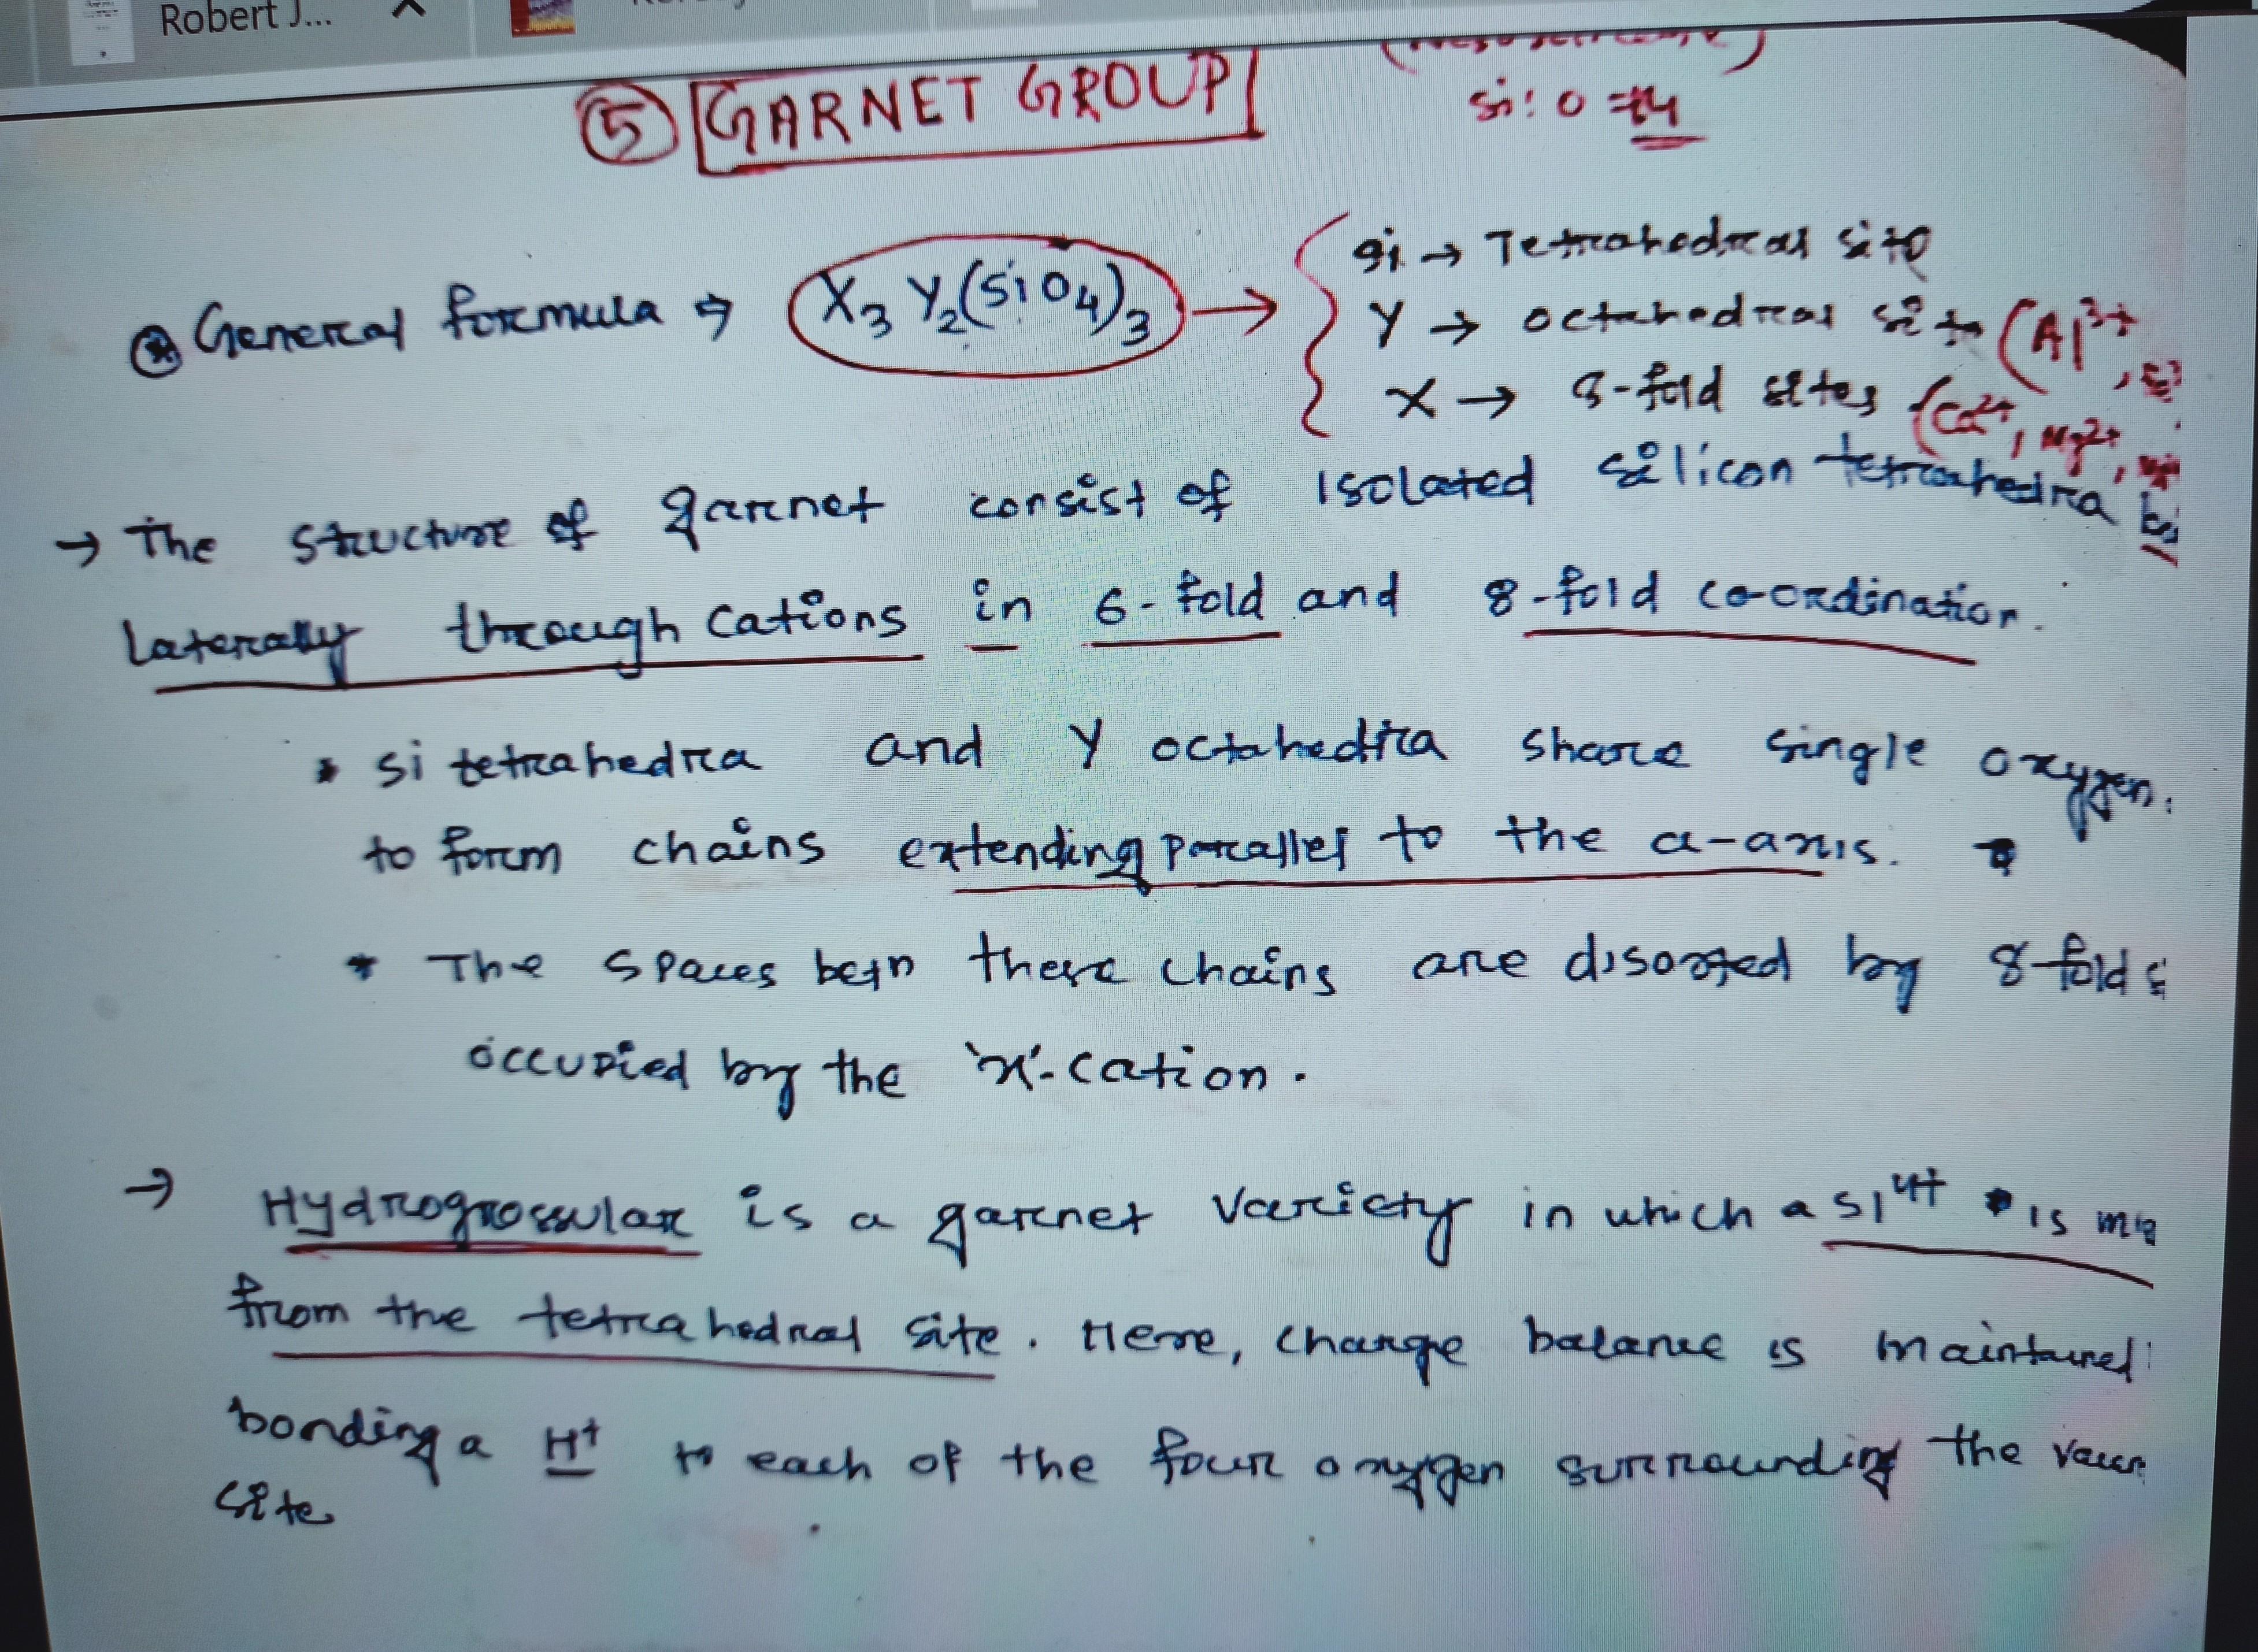 Robert J...
(Nesosilicate)
⑤ GARNET GROUP
Si:O = 1:4
General formula ⇒ X₃ Y₂(SiO₄)₃ →
Si → Tetrahedral site
Y → octahedral site (Al³⁺,
X → 8-fold sites (Ca²⁺, Mg²⁺,
→ The structure of garnet consist of isolated silicon tetrahedra
laterally through cations in 6-fold and 8-fold co-ordination.
* Si tetrahedra and Y octahedra share single oxygen
to form chains extending parallel to the a-axis.
* The spaces betn these chains are disorted by 8-fold
occupied by the 'x'-cation.
→ Hydrogrossular is a garnet variety in which a Si⁴⁺ is
from the tetrahedral site. Here, charge balance is maintained
bonding a H⁺ to each of the four oxygen surrounding the
site